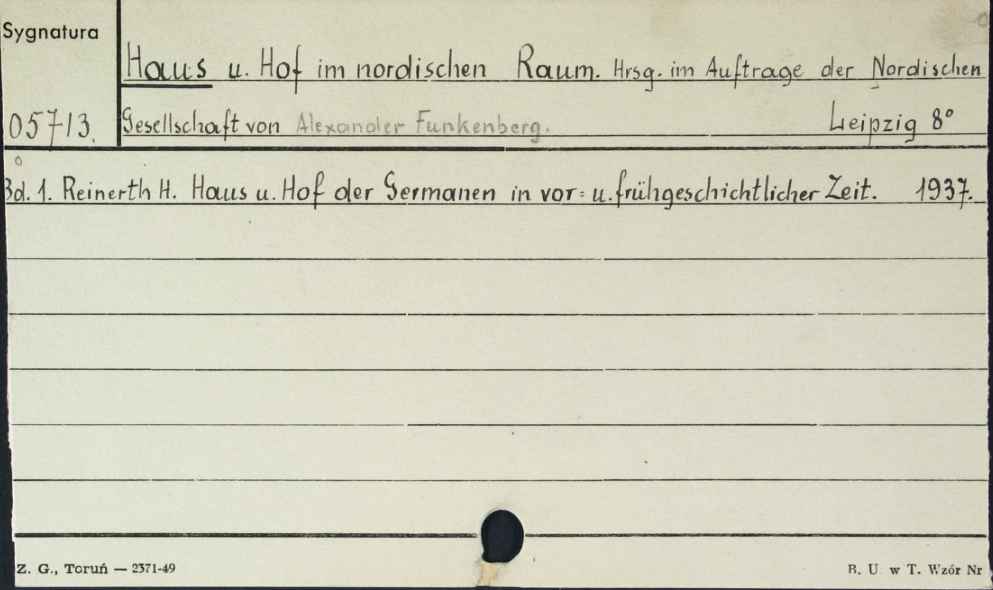 Sygnatura
Haus u. Hof im nordischen Raum. Hrsg. im Auftrage der Nordischen
05713. Gesellschaft von Alexander Funkenberg. Leipzig 8°
Bd. 1. Reinerth H. Haus u. Hof der Germanen in vor= u. frühgeschichtlicher Zeit. 1937.
Z. G., Toruń — 2371-49 B. U w T. Wzór Nr